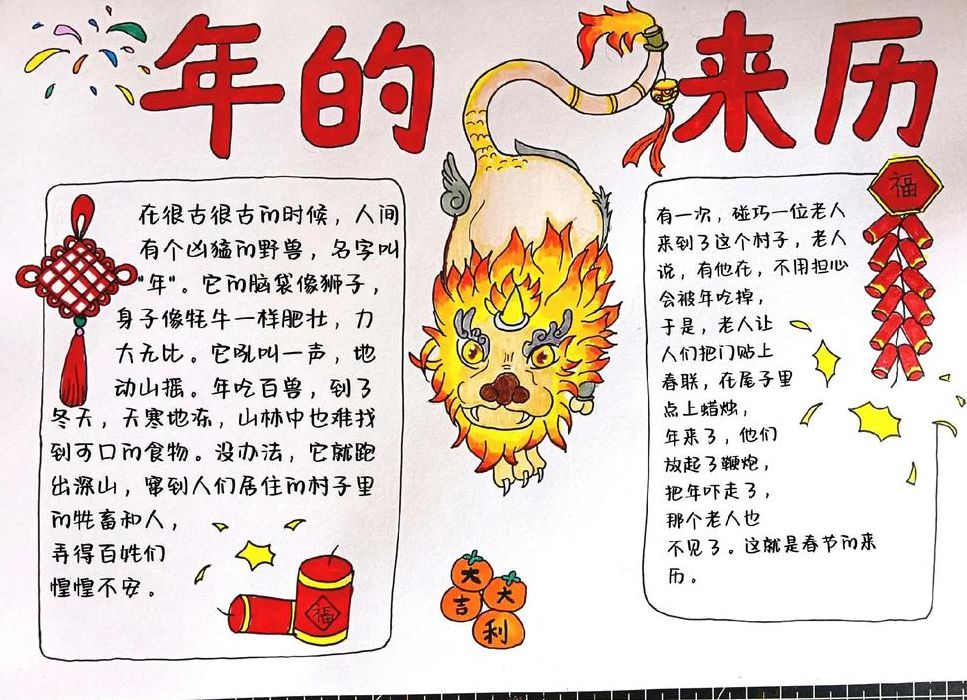 年的来历
在很古很古的时候，人间
有个凶猛的野兽，名字叫
"年"。它的脑袋像狮子，
身子像牦牛一样肥壮，力
大无比。它吼叫一声，地
动山摇。年吃百兽，到了
冬天，天寒地冻，山林中也难找
到可口的食物。没办法，它就跑
出深山，窜到人们居住的村子里
的牲畜和人，
弄得百姓们
惶惶不安。
福
大
大
吉
利
福
有一次，碰巧一位老人
来到了这个村子，老人
说，有他在，不用担心
会被年吃掉，
于是，老人让
人们把门贴上
春联，在屋子里
点上蜡烛，
年来了，他们
放起了鞭炮，
把年吓走了，
那个老人也
不见了。这就是春节的来
历。